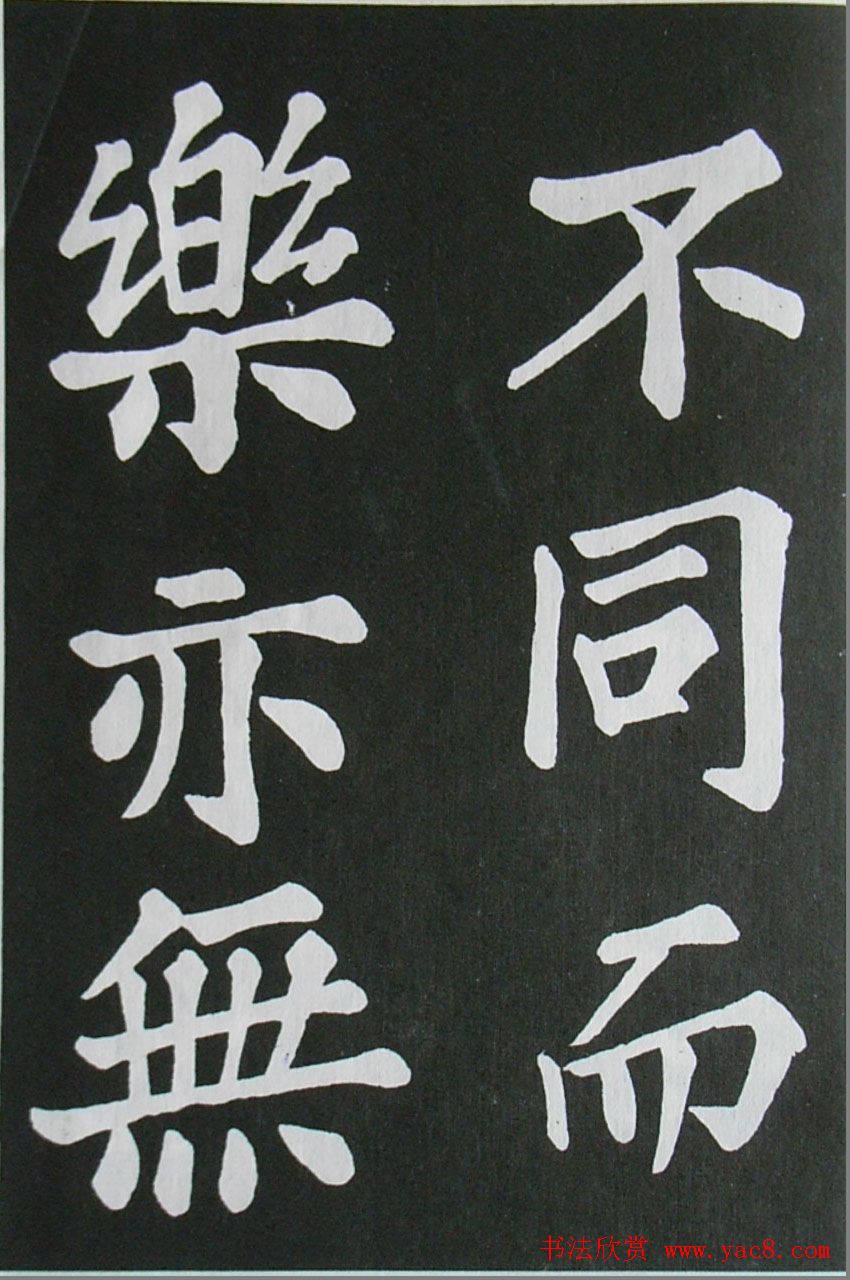 不同而
樂亦無
书法欣赏 www.yac8.com